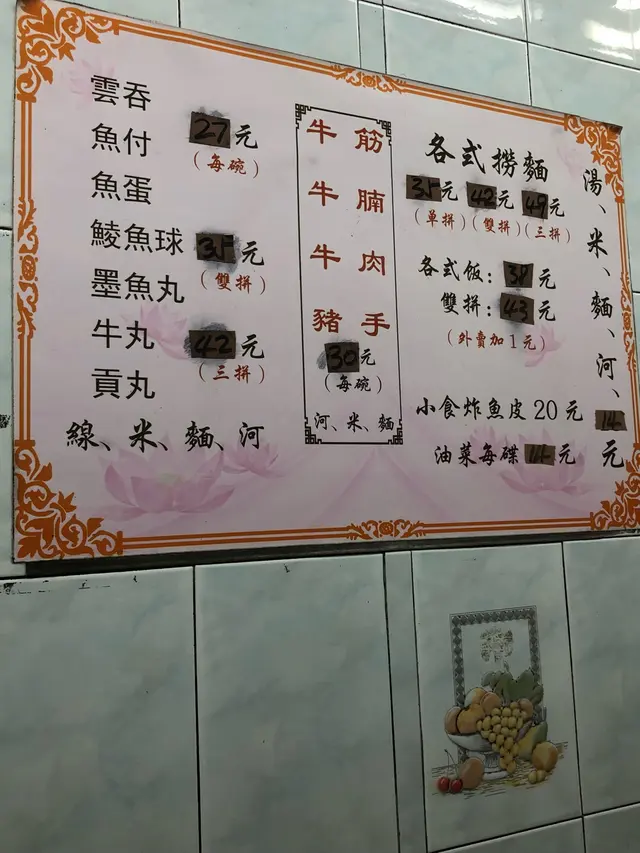 雲吞
魚付
27元
(每碗)
魚蛋
鯪魚球
35元
(雙拼)
墨魚丸
牛丸
42元
(三拼)
貢丸
線、米、麵、河
牛筋
牛腩
牛肉
豬手
30元
(每碗)
河、米、麵
各式撈麵
35元 42元 49元
(单拼) (雙拼) (三拼)
各式饭：38元
雙拼：43元
(外賣加1元)
小食炸魚皮20元
油菜每碟14元
湯、米、麵、河、14元